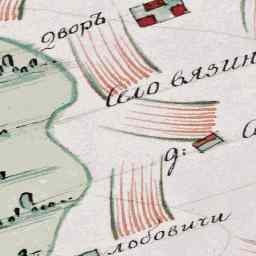 дворъ
село вязин
д:
лобовичи